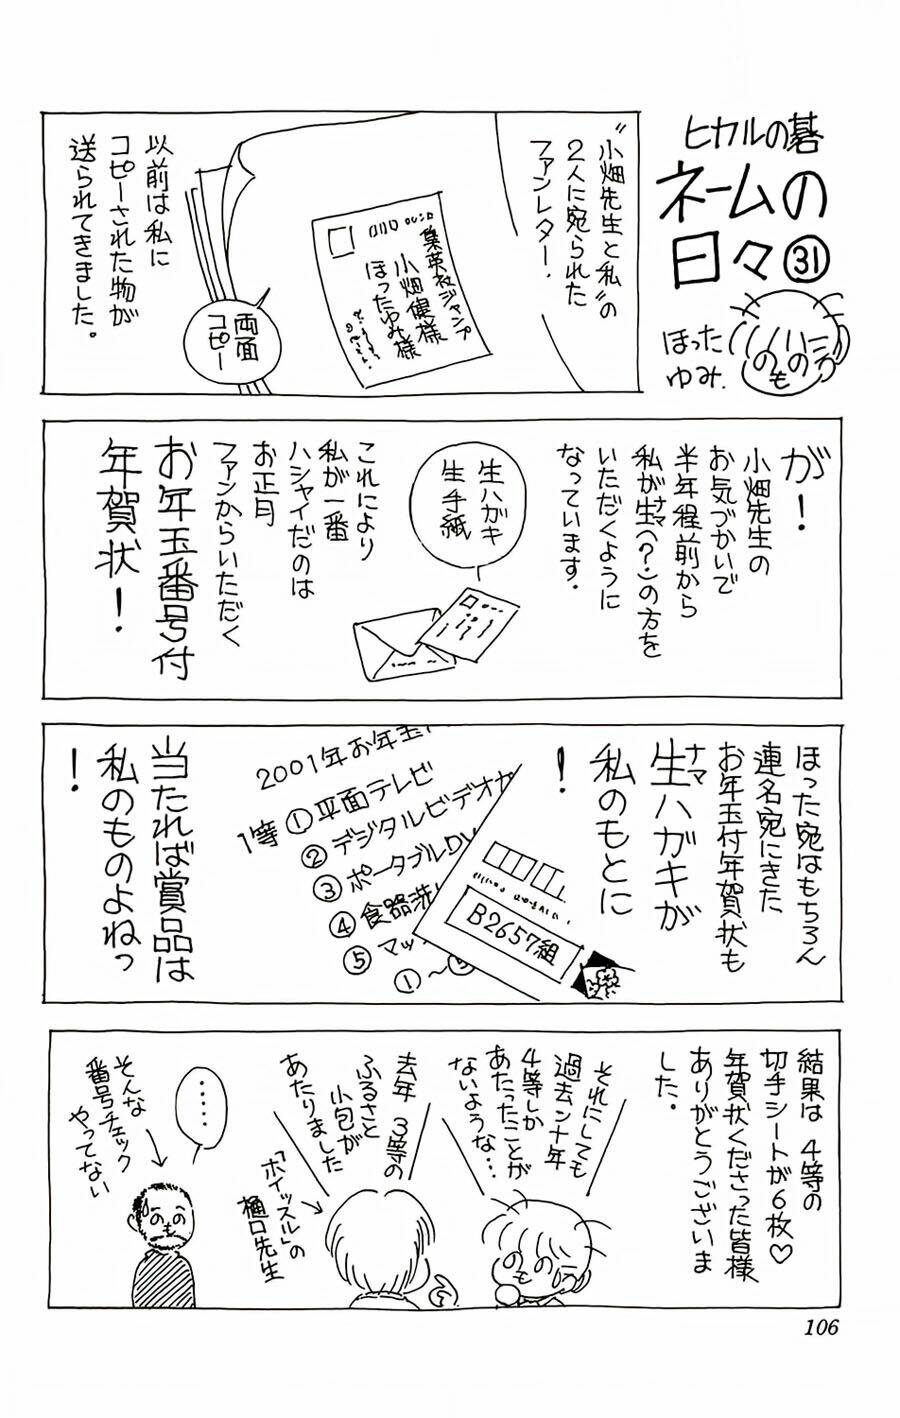 ヒカルの碁
ネームの
日々㉛
ほった
ゆみ.
〝小畑先生と私〟の
2人に宛られた
ファンレター.
集英社ジャンプ
小畑健様
ほったゆみ様
両面
コピー
以前は私に
コピーされた物が
送られてきました。
が!
小畑先生の
お気づかいで
半年程前から
私が生(?)の方を
ナマ
いただくように
なっています.
生ハガキ
生手紙
これにより
私が一番
ハシャイだのは
お正月
ファンからいただく
お年玉番号付
年賀状!
ほった宛はもちろん
連名宛にきた
お年玉付年賀状も
生ハガキが
ナマ
私のもとに
!
2001年お年玉
1等①平面テレビ
②デジタルビデオカ
③ポータブルDV
④食器洗
⑤マッ
①〜⑤
B2657組
当たれば賞品は
私のものよねっ
!
結果は4等の
切手シートが6枚♡
年賀状くださった皆様
ありがとうございま
した.
それにしても
過去ン十年
4等しか
あたったことが
ないような…
去年3等の
ふるさと
小包が
あたりました
「ホイッスル」の
樋口先生
‥‥‥
そんな
番号チェック
やってない
106